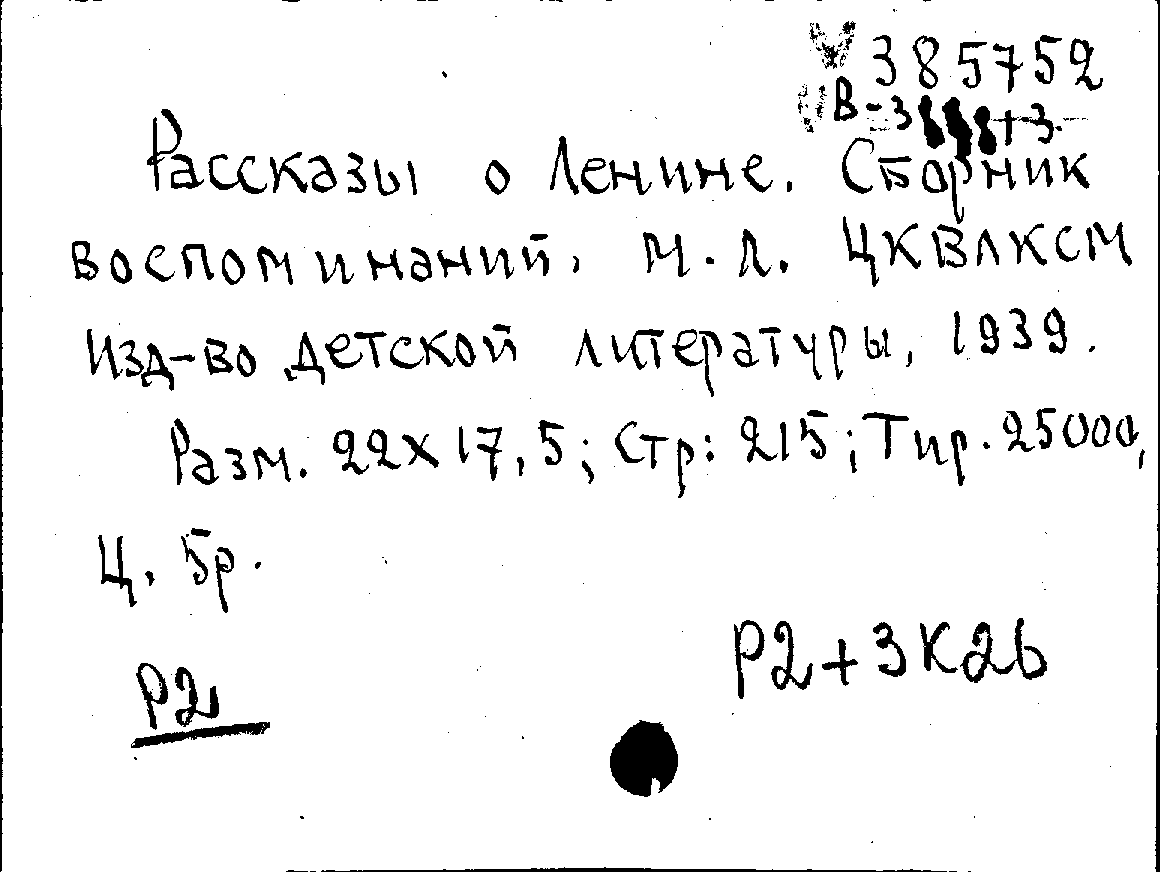 385752
Рассказы о Ленине. Сборник
воспоминаний, М.Л. ЦКВЛКСМ
Изд-во детской литературы, 1939.
Разм. 22х17,5; Стр: 215; Тир. 25000,
Ц. 5р.
Р2+3К26
Р2